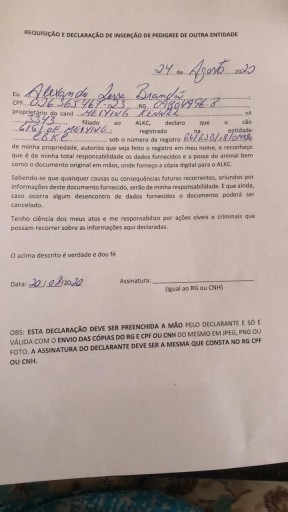 REQUISIÇÃO E DECLARAÇÃO DE INSERÇÃO DE PEDIGREE DE OUTRA ENTIDADE
24 de Agosto 2020
Eu Alexandre Brandão
CPF RG
proprietário do canil MEIYING KENNEL nº
5343 filiado ao ALKC, declaro que o cão
OF MEIYING registrado na entidade
CBKC sob o número de registro
de minha propriedade, autorizo que seja feito o registro em meu nome, e reconheço
que é de minha total responsabilidade os dados fornecidos e a posse do animal bem
como o documento original em mãos, onde forneço a cópia digital para o ALKC.
Sabendo-se que quaisquer causas ou consequências futuras recorrentes, oriundos por
informações deste documento fornecido, serão de minha responsabilidade. E que ainda,
caso ocorra algum desencontro de dados fornecidos o documento poderá ser
cancelado.
Tenho ciência dos meus atos e me responsabilizo por ações cíveis e criminais que
possam recorrer sobre as informações aqui declaradas.
O acima descrito é verdade e dou fé
Data: 20/08/2020 Assinatura:
(Igual ao RG ou CNH)
OBS: ESTA DECLARAÇÃO DEVE SER PREENCHIDA A MÃO PELO DECLARANTE E SÓ É
VÁLIDA COM O ENVIO DAS CÓPIAS DO RG E CPF OU CNH DO MESMO EM JPEG, PNG OU
FOTO. A ASSINATURA DO DECLARANTE DEVE SER A MESMA QUE CONSTA NO RG CPF
OU CNH.